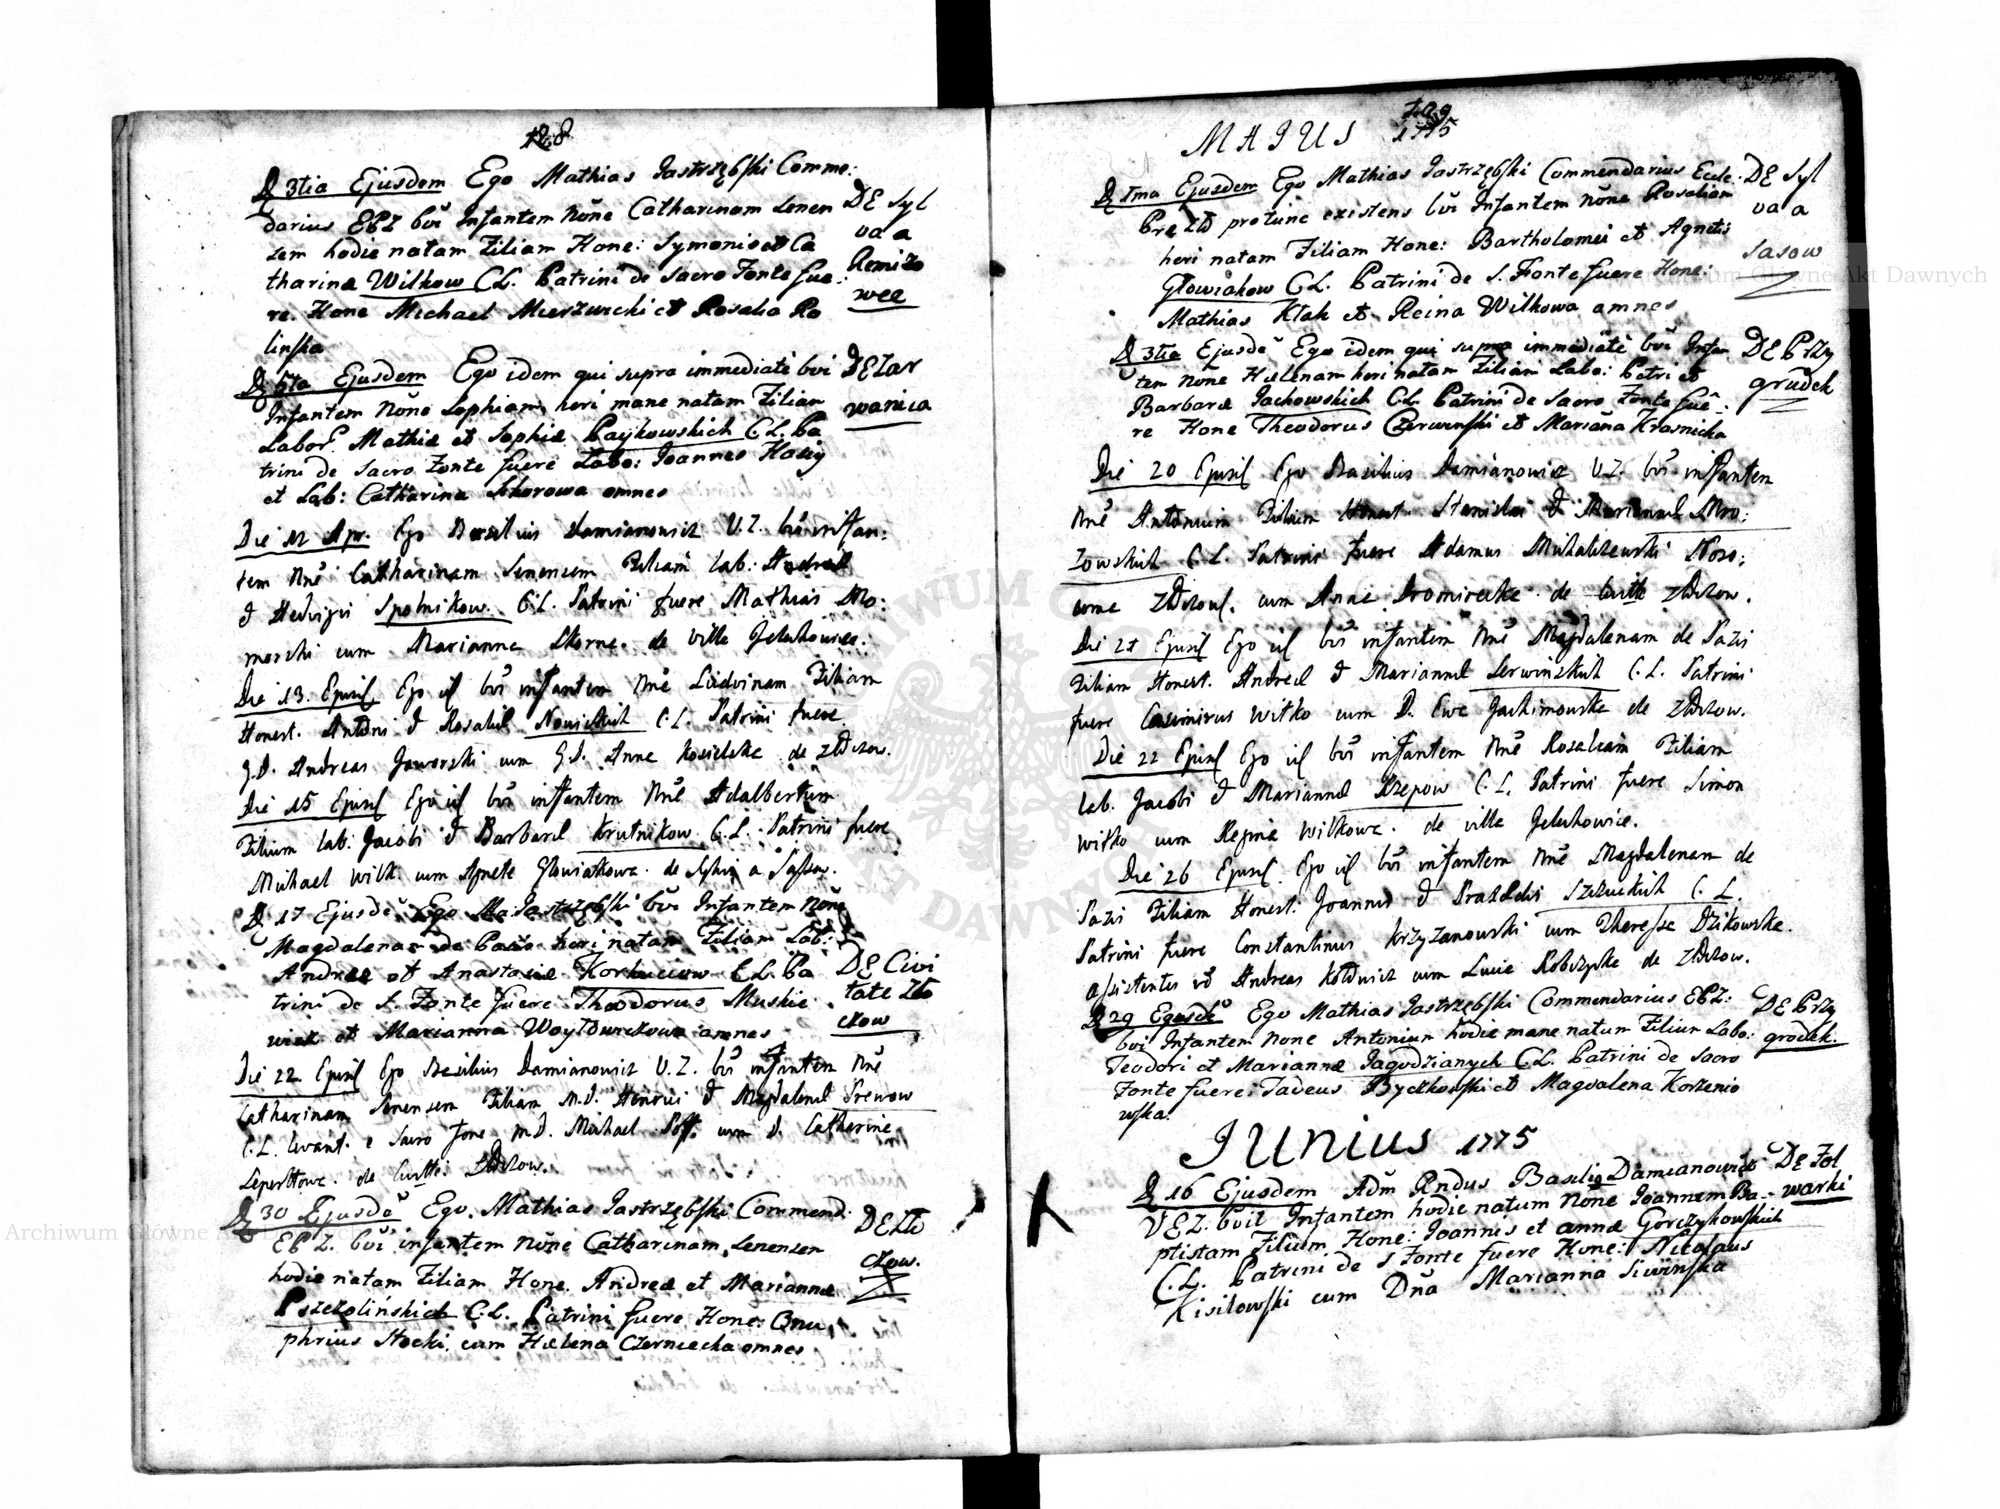 128
D 3tia Ejusdem Ego Mathias Jastrzębski Comme:
darius EPZ bŭi Infantem Nōne Catharinam Senen
sem hodie natam Filiam Hone: Symonis et Ca
tharinæ Wilkow CL. Patrini de Sacro Fonte fue:
re Hone Michael Mierzwicki et Rosalia Ro
linska
DE Syl
va a
Remizo
wce
D 5ta Ejusdem Ego idem qui supra immediatè bvi
Infantem Nōne Sophiam heri mane natam Filiam
Labor. Mathiæ et Sophiæ Paykowskich C.L. Pa
trini de Sacro Fonte fuere Labo: Joannes Haiy
et Lab: Catharina Sikorowa omnes
DE Zar
wanica
Die 12 Apr. Ego Basilius Damianowicz V.Z. bŭi infan:
tem Nnē Catharinam Senensem Filiam Lab: Andreæ
& Hedvigis Spolnikow C.L. Patrini fuere Mathias Mro:
morski cum Marianna Skorna. de villa Jeluchowice.
Die 13 Ejusd Ego id bŭi infantem Nnē Ludvinam Filiam
Honest. Antoni & Rosaliæ Nowickich C.L. Patrini fuere
G.D. Andreas Jaworski cum G.D. Anna Kosielska de Złoczow.
Die 15 Ejusd Ego id bŭi infantem Nnē Adalbertum
Filium Lab. Jacobi & Barbaræ Krutnikow C.L. Patrini fuere
Michael Wilk cum Agnete Głowiakowa. de Sylvia a Sassow.
D 17 Ejusdē Ego Ma: Jastrzębski bŭi Infantem Nōne
Magdalenas de Pasis heri natam Filiam Lab:
Andreæ et Anastasiæ Korkuciow C.L. Pa
trini de S. Fonte fuere Theodorus Muskie
wicz et Marianna Woytowickowa omnes
DE Civi
tate Zło
czow
Die 22 Ejusd Ego Basilius Damianowicz V.Z. bŭi infantem Nnē
Catharinam Senensem Filiam M.D. Henrici & Magdalenæ Prewow
C.L. levant. e Sacro fone M.D. Michael Poff. cum D. Catharina
de Złoczow.
D 30 Ejusdē Ego. Mathias Jastrzębski Commend:
EP Z. bŭi infantem Nōne Catharinam Senensen
hodie natam Filiam Hone. Andreæ et Mariannæ
Pszczolińskich C.L. Patrini fuere Hone: Onu
phrius Stocki cum Hælena Czerniecka omnes
DE Zło
czow.
129
MAJUS 1775
D 1ma Ejusdem Ego Mathias Jastrzębski Commendarius Eccle:
Præ Zło protunc existens bŭi Infantem Nōne Rosaliam
heri natam Filiam Hone: Bartholomei et Agnetis
Głowiakow C.L. Patrini de S. Fonte fuere Hone:
Mathias Kłak et Reina Wilkowa omnes
DE Syl
va a
Sasow
D 3tia Ejusdē Ego idem qui supra immediatè bŭi Infan
tem Nōne Hælenam heri natam Filiam Labo: Petri et
Barbaræ Jachowskich C.L. Patrini de Sacro Fonte fuê:
re Hone Theodorus Czerwinski et Mariana Krasnicka
DE Przy
grudek
Die 20 Ejusd Ego Basilius Damianowicz V.Z. bŭi infantem
Nnē Antonium Filium Honest. Stanislai & Mariannæ Mro:
zowskich C.L. Patrini fuere Adamus Michalczewski
cum Anna Dromirecka de Złoczow.
Die 21 Ejusd Ego id bŭi infantem Nnē Magdalenam de Pazis
Filiam Honest. Andreæ & Mariannæ Serwinskich C.L. Patrini
fuere Casimirus Witko cum D. Ewa Jachimowska de Złoczow.
Die 22 Ejusd Ego id bŭi infantem Nnē Rosaliam Filiam
Lab. Jacobi & Mariannæ Krzepow C.L. Patrini fuere Simon
Witko cum Regina Wilkowa. de villa Jeluchowice.
Die 26 Ejusd. Ego id bŭi infantem Nnē Magdalenam de
Pazis Filiam Honest. Joannis & Praxedis Szewckich C.L.
Patrini fuere Constantinus Krzyzanowski cum Theressa Dzikowska.
Assistentes vō Andreas Kołtowicz cum Lucia Robczycka de Złoczow.
D 29 Ejusdē Ego Mathias Jastrzębski Commendarius EPZ:
bŭi Infantem None Antonium hodie mane natum Filium Labo:
Teodori et Mariannæ Jagodzianych C.L. Patrini de Sacro
Fonte fuere: Tadeus Byczkowski et Magdalena Korzenio
wska.
DE Przy
grodek.
JUNIUS 1775
D 16 Ejusdem Adm Rndus Basilig Damianowicz
VEZ. bŭit Infantem hodie natum Nōne Joannem Ba
ptistam Filium Hone: Joannis et annæ Gorczykowskich
C.L. Patrini de S Fonte fuere Hone: Nicolaus
Kisilowski cum Dnā Marianna Siwinska
DE Fol
warki
Archiwum Główne Akt Dawnych